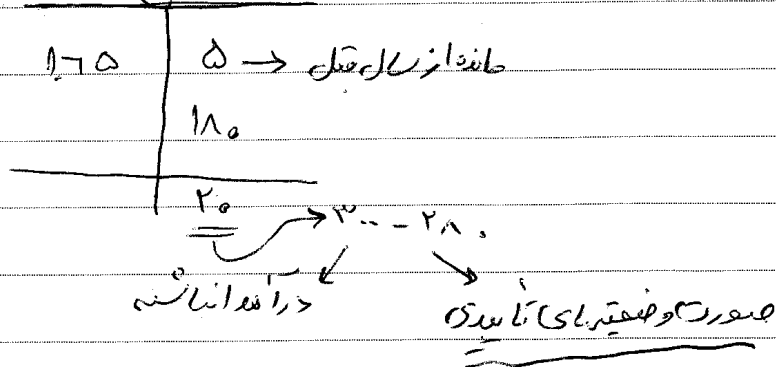 ۱۶۵ ۵ → مانده از سال قبل
۱۸۰
۲۰ → ۳۰۰ - ۲۸۰
درآمد انباشته
صورت وضعیت‌های تأییدی